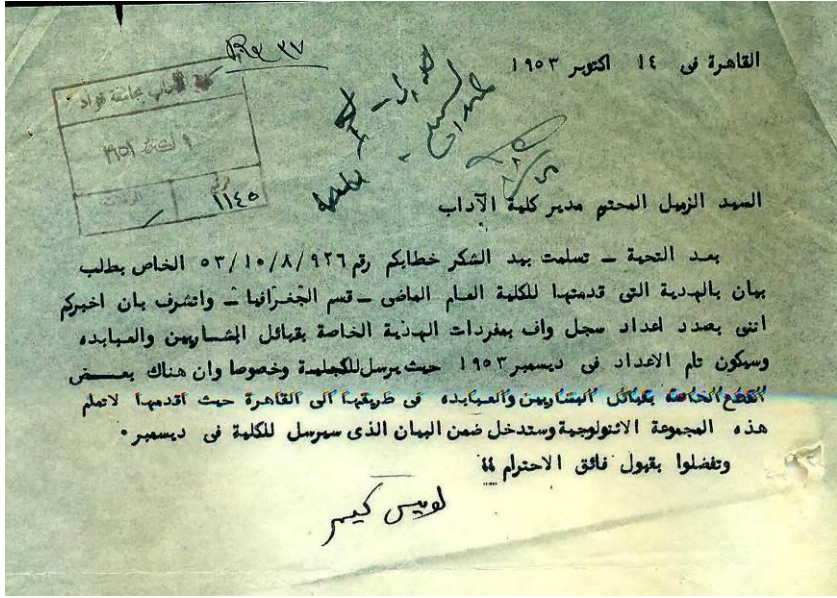 القاهرة فى ١٤ اكتوبر ١٩٥٣
كلية الآداب بجامعة فؤاد
رقم
١١٤٥
السيد الزميل المحترم مدير كلية الآداب
بعد التحية – تسلمت بيد الشكر خطابكم رقم ٩٢٦/٨/١٠/٥٣ الخاص بطلب
بيان بالهدية التى قدمتها للكلية العام الماضى – قسم الجغرافيا – واتشرف بان اخبركم
اننى بصدد اعداد سجل واف بمفردات الهدية الخاصة بقبائل البشاريين والعبابده
وسيكون تام الاعداد فى ديسمبر ١٩٥٣ حيث يرسل للكلية وخصوصا وان هناك بعض
القطع الخاصة بقبائل البشاريين والعبابده فى طريقها الى القاهرة حيث اقدمها لاتمام
هذه المجموعة الاثنولوجية وستدخل ضمن البيان الذى سيرسل للكلية فى ديسمبر٠
وتفضلوا بقبول فائق الاحترام ،،
لويس كيمر